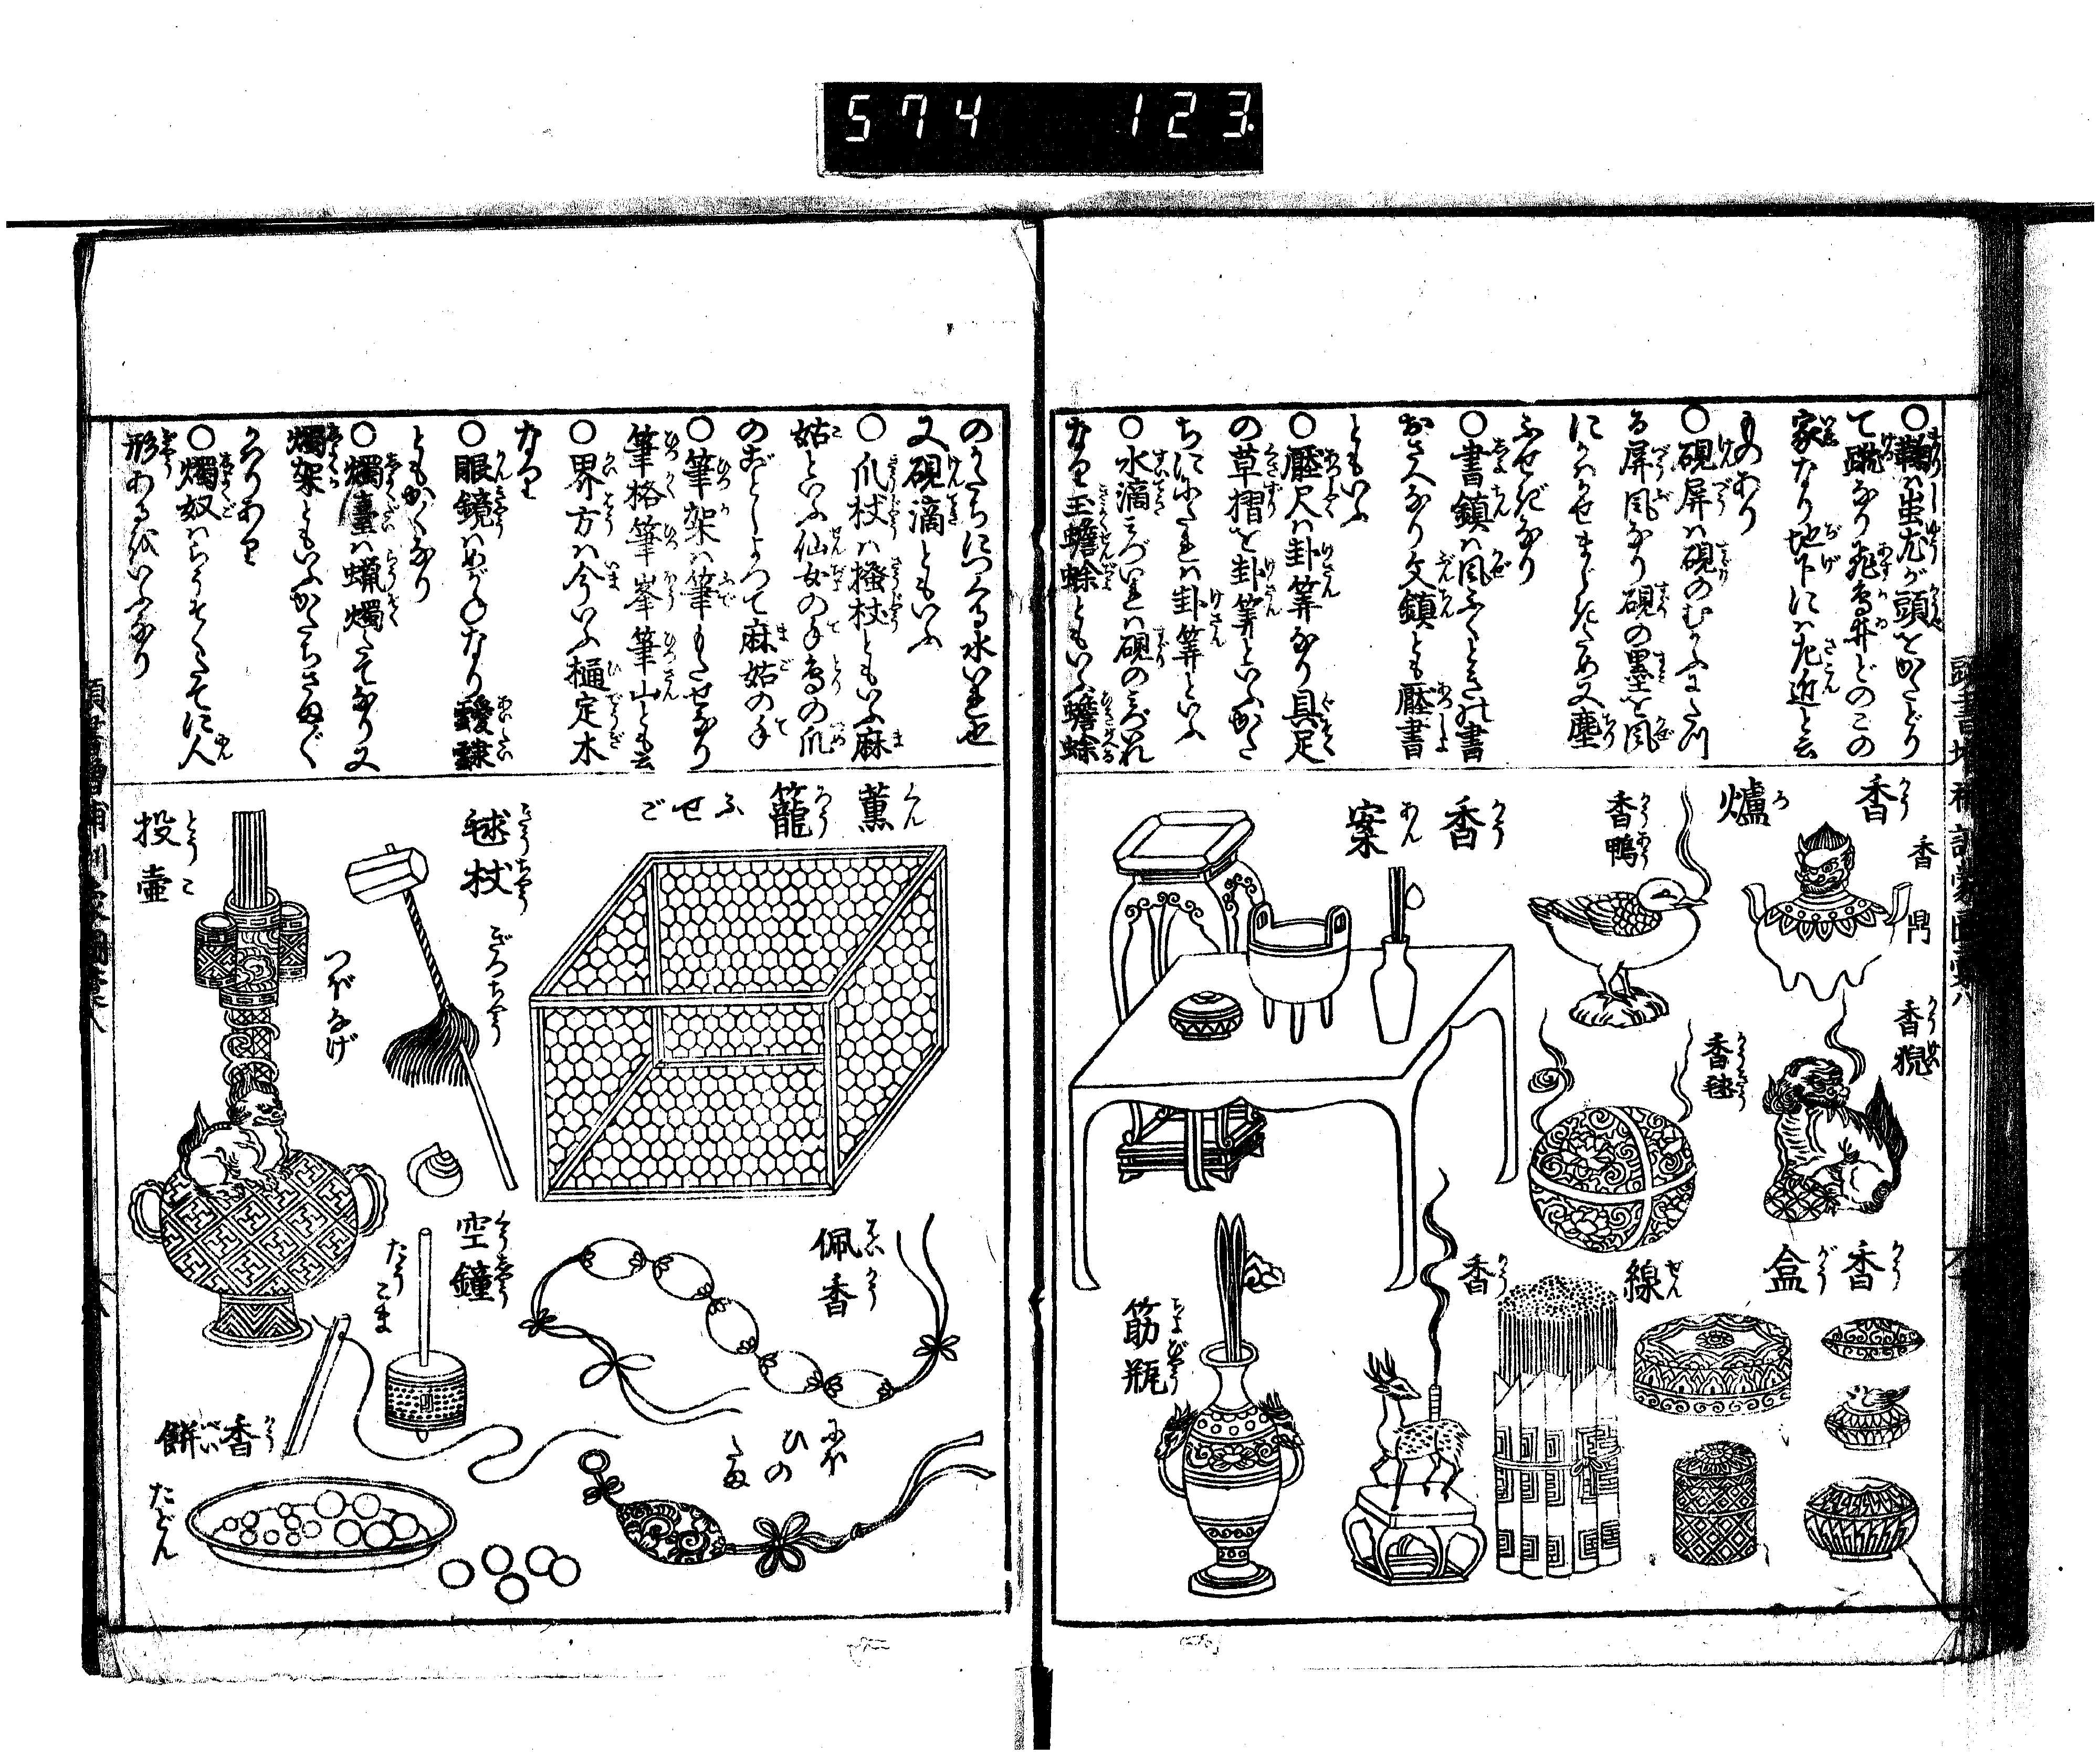 574 123.
○鞠は蚩尤が頭をかたどり
て蹴なり飛鳥井どのこの
家なり地下には左近と云
ものあり
○硯屏は硯のむかふにたつ
る屏風なり硯の墨を風
にかはかせまじきため又塵
ふせぎなり
○書鎮は風ふくときの書
おさへなり文鎮とも壓書
ともいふ
○壓尺は卦筭なり具足
の草摺を卦筭といふかた
ちに似たれば卦筭といふ
○水滴みづいれは硯のみづいれ
なり玉蟾蜍ともいふ蟾蜍
香爐
香鼎
香鴨
香猊
香毬
香案
香盒
線香
筯瓶
のかたちにつくる水いれ也
又硯滴ともいふ
○爪杖は搔杖ともいふ麻
姑といふ仙女の手鳥の爪
のごとしよつて麻姑の手
○筆架は筆もたせなり
筆格筆峯筆山とも云
○界方は今いふ樋定木
なり
○眼鏡はめがねなり靉靆
ともかくなり
○燭臺は蠟燭たてなり又
燭架ともいふかたちさまざま
かはりあり
○燭奴はらうそくたてに人
形あるをいふなり
薫籠 ふせご
毬杖 ぎつちやう
投壷 つぼなげ
佩香 にほひのたま
空鐘 たうこま
香餅 たどん